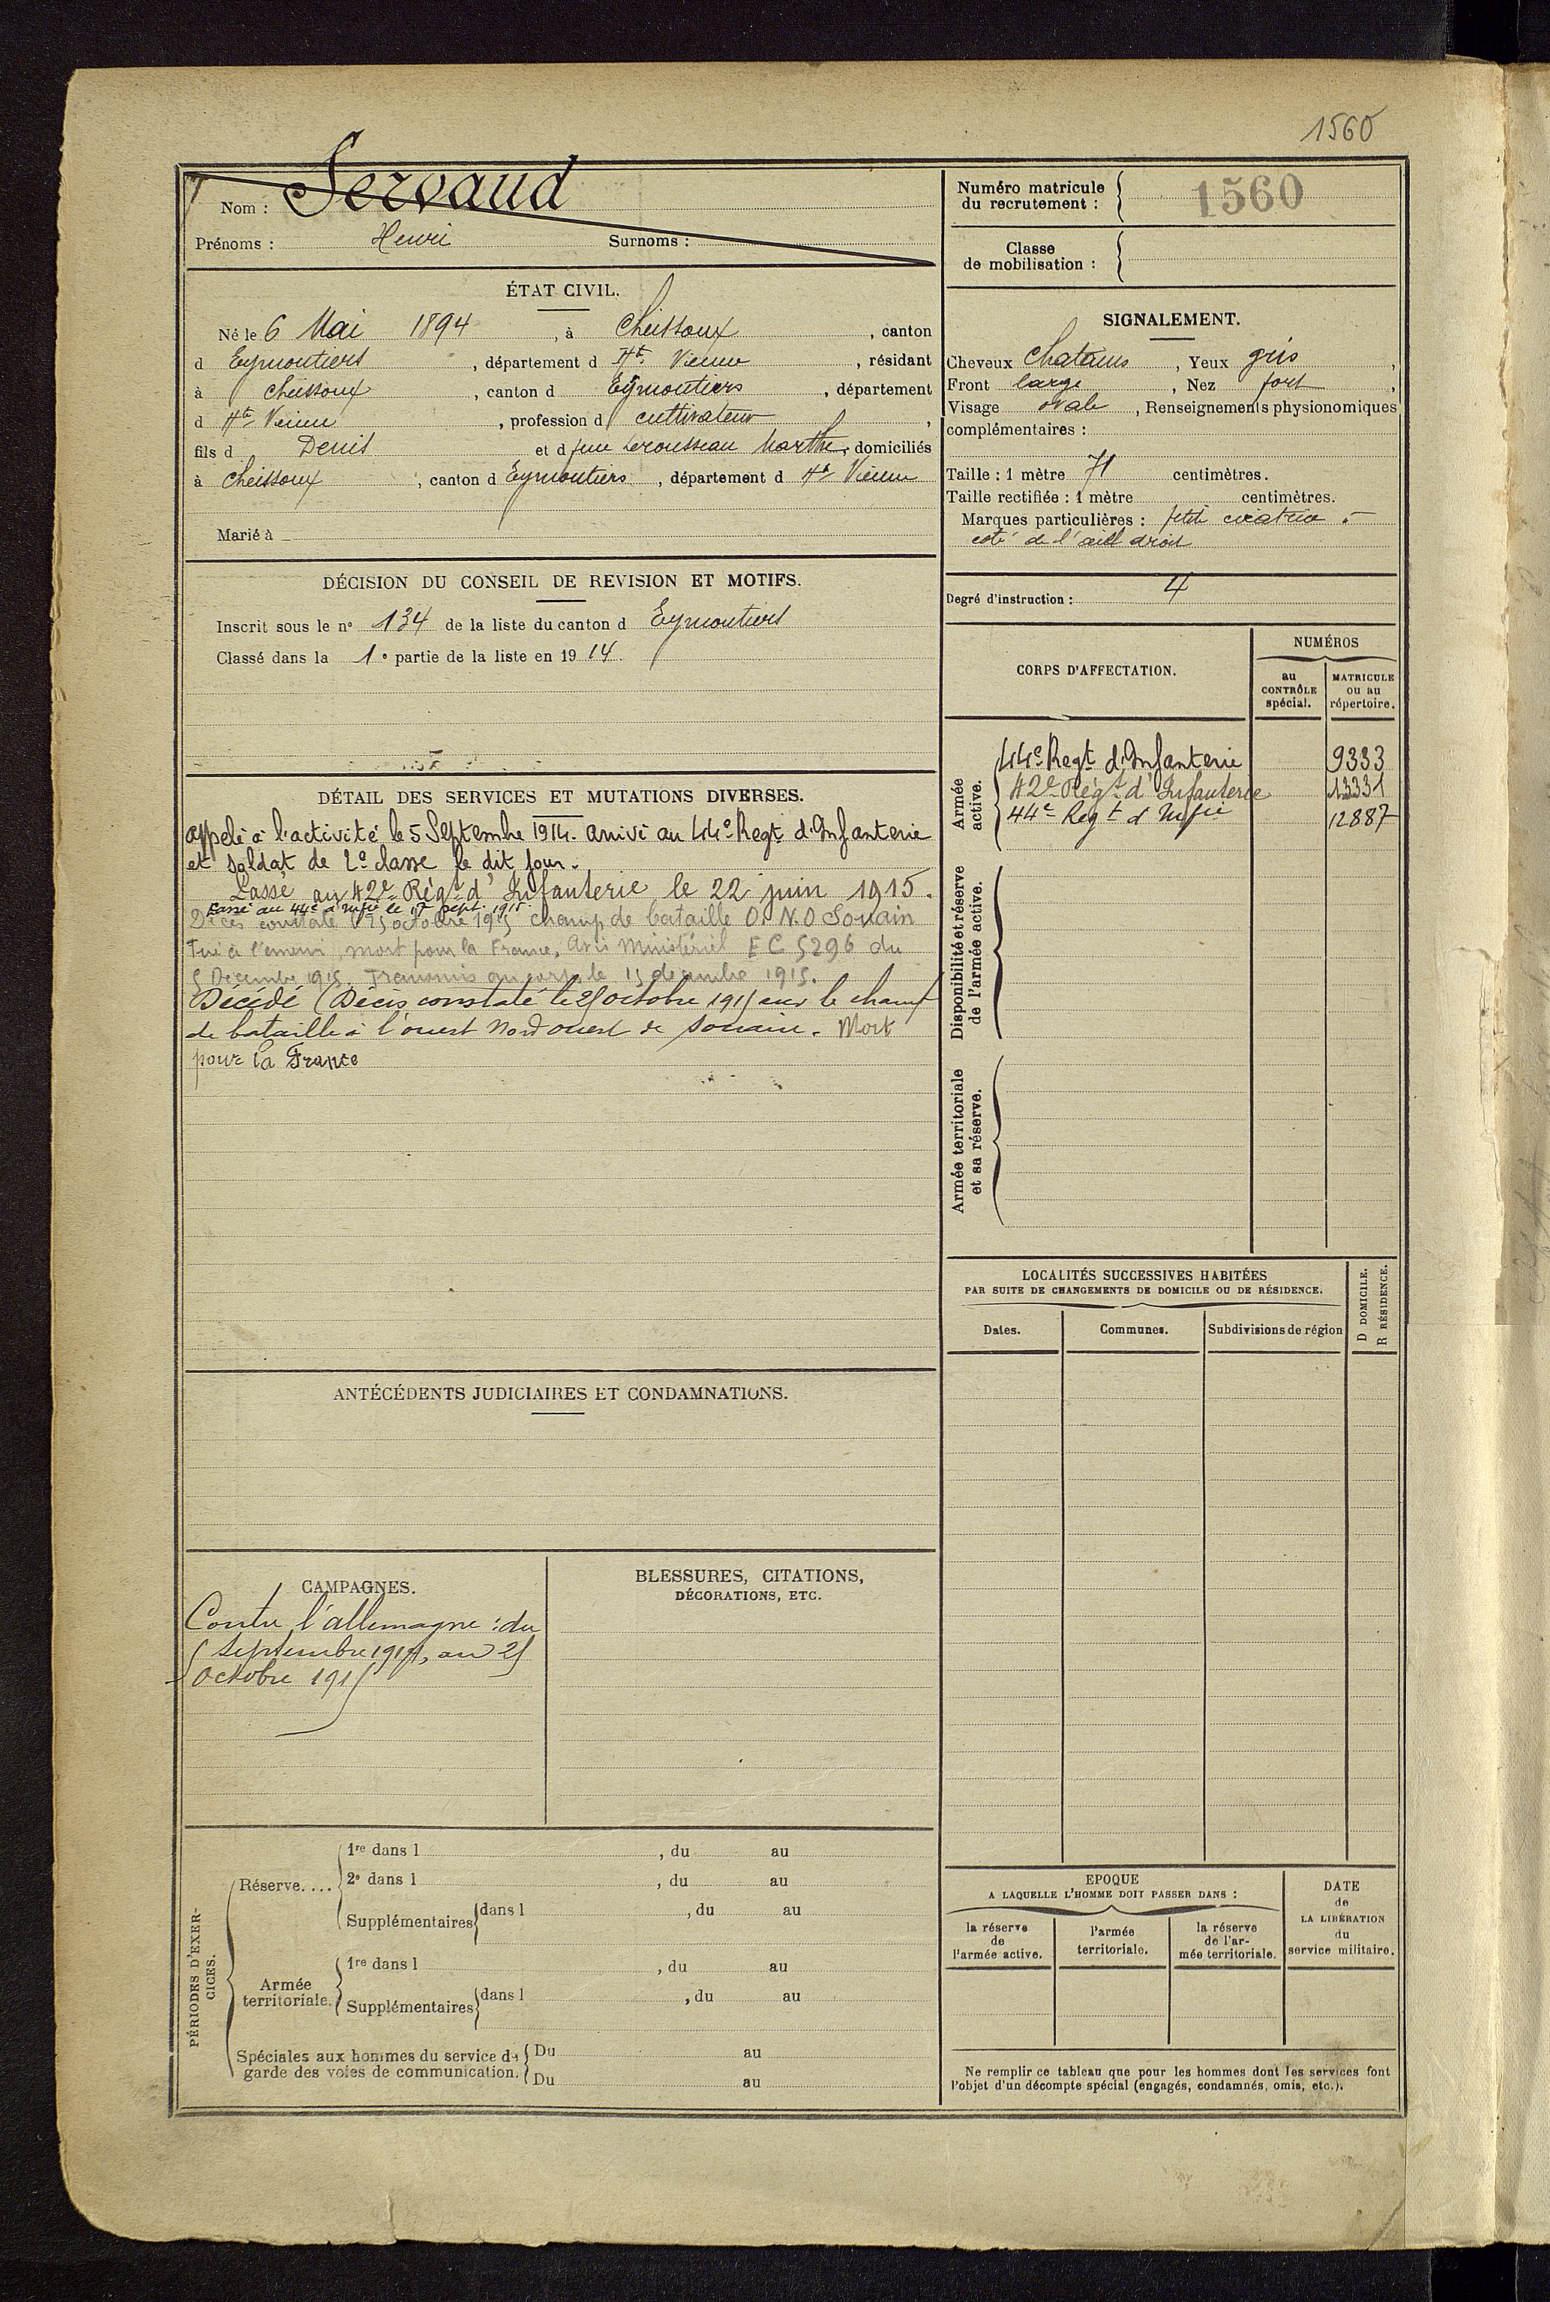 1560
Nom : Servaud
Prénoms : Henri Surnoms :
ÉTAT CIVIL.
Né le 6 Mai 1894, à Cheissoux, canton
d Eymoutiers, département d Hte Vienne, résidant
à Cheissoux, canton d Eymoutiers, département
d Hte Vienne, profession d cultivateur,
fils d Denis et d Marthe, domiciliés
à Cheissoux, canton d Eymoutiers, département d Hte Vienne
Marié à
DÉCISION DU CONSEIL DE REVISION ET MOTIFS.
Inscrit sous le n° 134 de la liste du canton d Eymoutiers
Classé dans la 1e partie de la liste en 1914.
DÉTAIL DES SERVICES ET MUTATIONS DIVERSES.
appelé à l'activité le 5 Septembre 1914. arrivé au 44e Regt d'Infanterie
et soldat de 2e classe le dit jour.
Passé au 42e Régt d'Infanterie le 22 juin 1915.
Passé au 44e d'Infie le 17 sept. 1915.
Décès constaté le 25 octobre 1915 champ de bataille O.N.O Souain
Tué à l'ennemi, mort pour la France, Avis Ministériel E C 5296 du
5 Décembre 1915. Transmis au corps le 15 décembre 1915.
Décédé (Décès constaté le 25 octobre 1915 sur le champ
de bataille à l'ouest Nord ouest de Souain. Mort
pour la France
ANTÉCÉDENTS JUDICIAIRES ET CONDAMNATIONS.
CAMPAGNES.
Contre l'allemagne : du
5 septembre 1914, au 25
octobre 1915
BLESSURES, CITATIONS,
DÉCORATIONS, ETC.
PÉRIODES D'EXER-
CICES.
Réserve....
1re dans l , du au
2e dans l , du au
Supplémentaires dans l , du au
Armée
territoriale.
1re dans l , du au
Supplémentaires dans l , du au
Spéciales aux hommes du service de
garde des voies de communication.
Du au
Du au
Numéro matricule
du recrutement : 1560
Classe
de mobilisation :
SIGNALEMENT.
Cheveux chatains, Yeux gris,
Front large, Nez fort,
Visage ovale, Renseignements physionomiques
complémentaires :
Taille : 1 mètre 71 centimètres.
Taille rectifiée : 1 mètre centimètres.
Marques particulières : petite cicatrice à
coté de l'œil droit
Degré d'instruction : 4
CORPS D'AFFECTATION.
NUMÉROS
au
CONTRÔLE
spécial.
MATRICULE
ou au
répertoire.
Armée
active.
44e Regt d'Infanterie 9333
42e Régt d'Infanterie 13331
44e Regt d'Infie 12887
Disponibilité et réserve
de l'armée active.
Armée territoriale
et sa réserve.
LOCALITÉS SUCCESSIVES HABITÉES
PAR SUITE DE CHANGEMENTS DE DOMICILE OU DE RÉSIDENCE.
D DOMICILE.
R RÉSIDENCE.
Dates. Communes. Subdivisions de région
EPOQUE
A LAQUELLE L'HOMME DOIT PASSER DANS :
la réserve
de
l'armée active.
l'armée
territoriale.
la réserve
de l'ar-
mée territoriale.
DATE
de
LA LIBÉRATION
du
service militaire.
Ne remplir ce tableau que pour les hommes dont les services font
l'objet d'un décompte spécial (engagés, condamnés, omis, etc.).